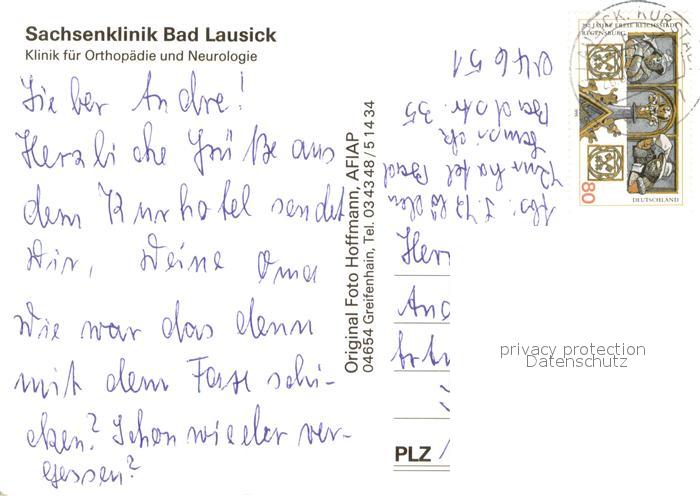 Sachsenklinik Bad Lausick
Klinik für Orthopädie und Neurologie
Lieber Andre!
Herzliche Grüße aus
dem Kurhotel sendet
Dir, Deine Oma
Wie war das denn
mit dem Faxe schi-
cken? Schon wieder ver-
gessen?
Original Foto Hoffmann, AFIAP
04654 Greifenhain, Tel. 03 43 48 / 5 14 34
Abs:
Kurhotel Bad
Lausick
Badstr. 35
04651
Herr
And
PLZ
REGENSBURG
80
DEUTSCHLAND
privacy protection
Datenschutz